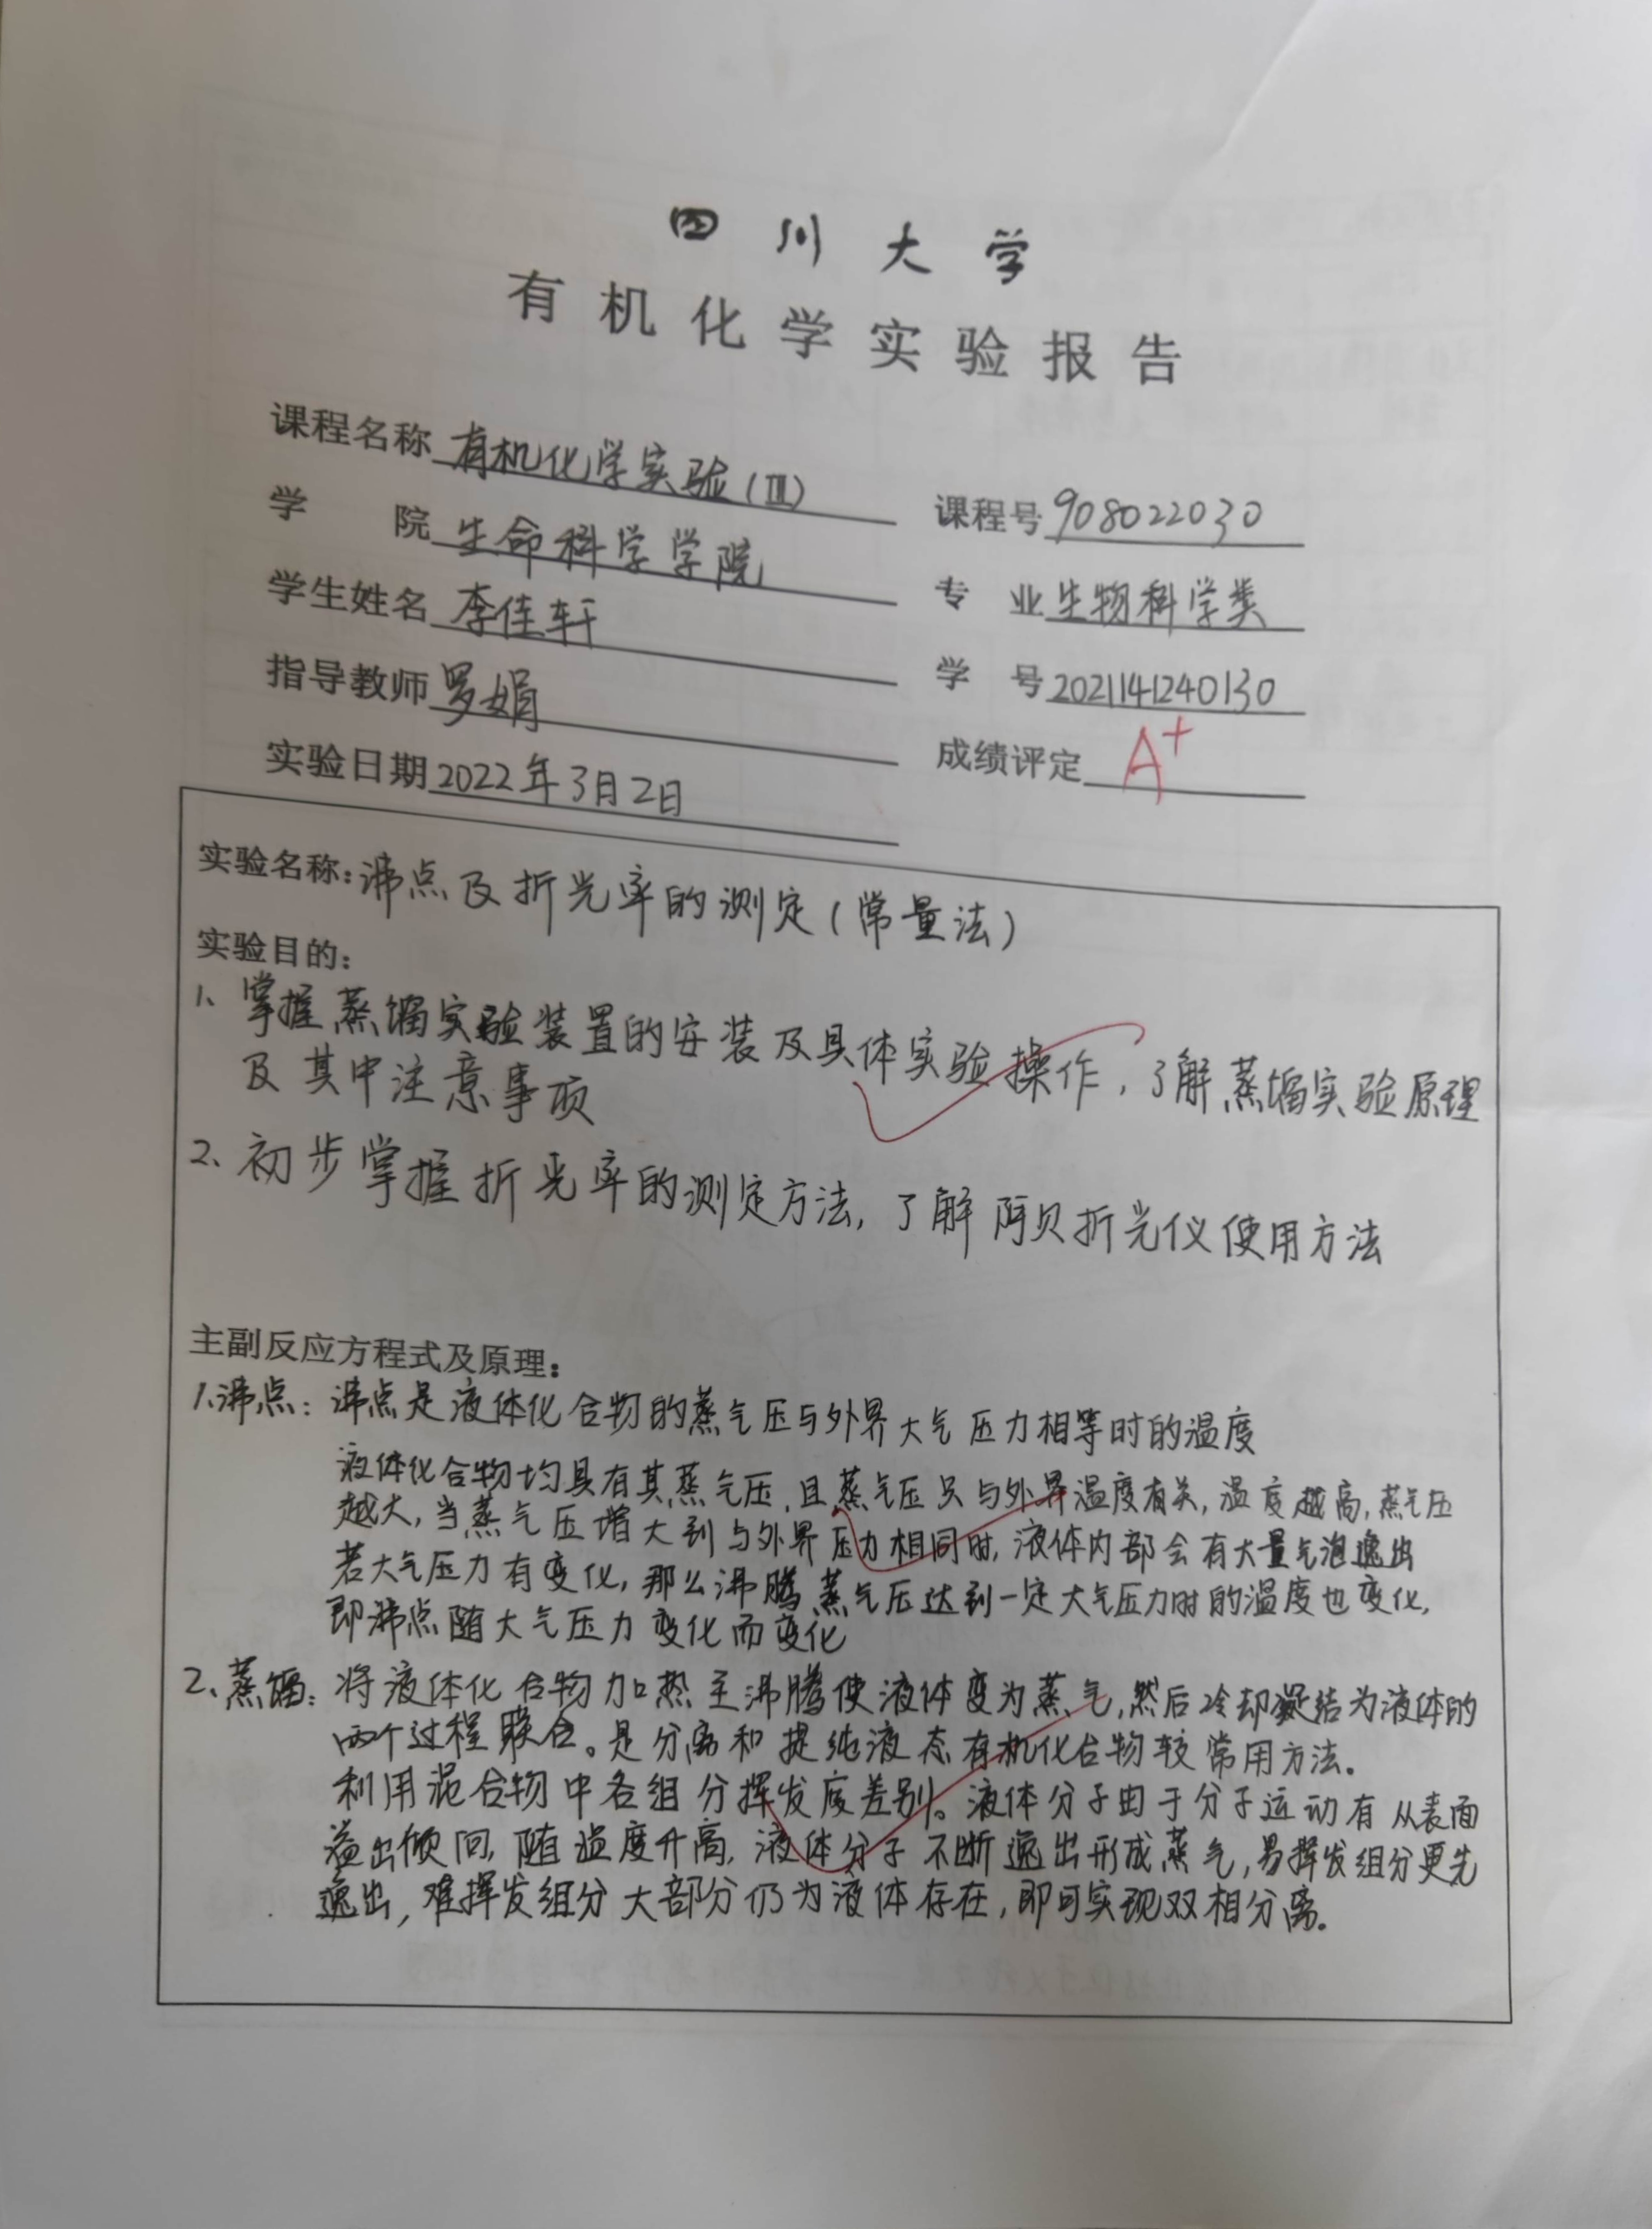 四川大学
有机化学实验报告
课程名称 有机化学实验(Ⅲ) 课程号 908022030
学院 生命科学学院 专业 生物科学类
学生姓名 李佳轩 学号 2021141240130
指导教师 罗娟 成绩评定 A+
实验日期 2022年3月2日
实验名称:沸点及折光率的测定(常量法)
实验目的:
1、掌握蒸馏实验装置的安装及具体实验操作,了解蒸馏实验原理
及其中注意事项
2、初步掌握折光率的测定方法,了解阿贝折光仪使用方法
主副反应方程式及原理:
1.沸点:沸点是液体化合物的蒸气压与外界大气压力相等时的温度
液体化合物均具有其蒸气压,且蒸气压只与外界温度有关,温度越高,蒸气压
越大,当蒸气压增大到与外界压力相同时,液体内部会有大量气泡逸出
若大气压力有变化,那么沸腾蒸气压达到一定大气压力时的温度也变化,
即沸点随大气压力变化而变化
2、蒸馏:将液体化合物加热至沸腾使液体变为蒸气,然后冷却凝结为液体的
两个过程联合。是分离和提纯液态有机化合物较常用方法。
利用混合物中各组分挥发度差别。液体分子由于分子运动有从表面
溢出倾向,随温度升高,液体分子不断逸出形成蒸气,易挥发组分更先
逸出,难挥发组分大部分仍为液体存在,即可实现双相分离。